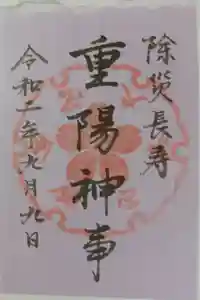 除災長寿
重陽神事
令和二年九月九日